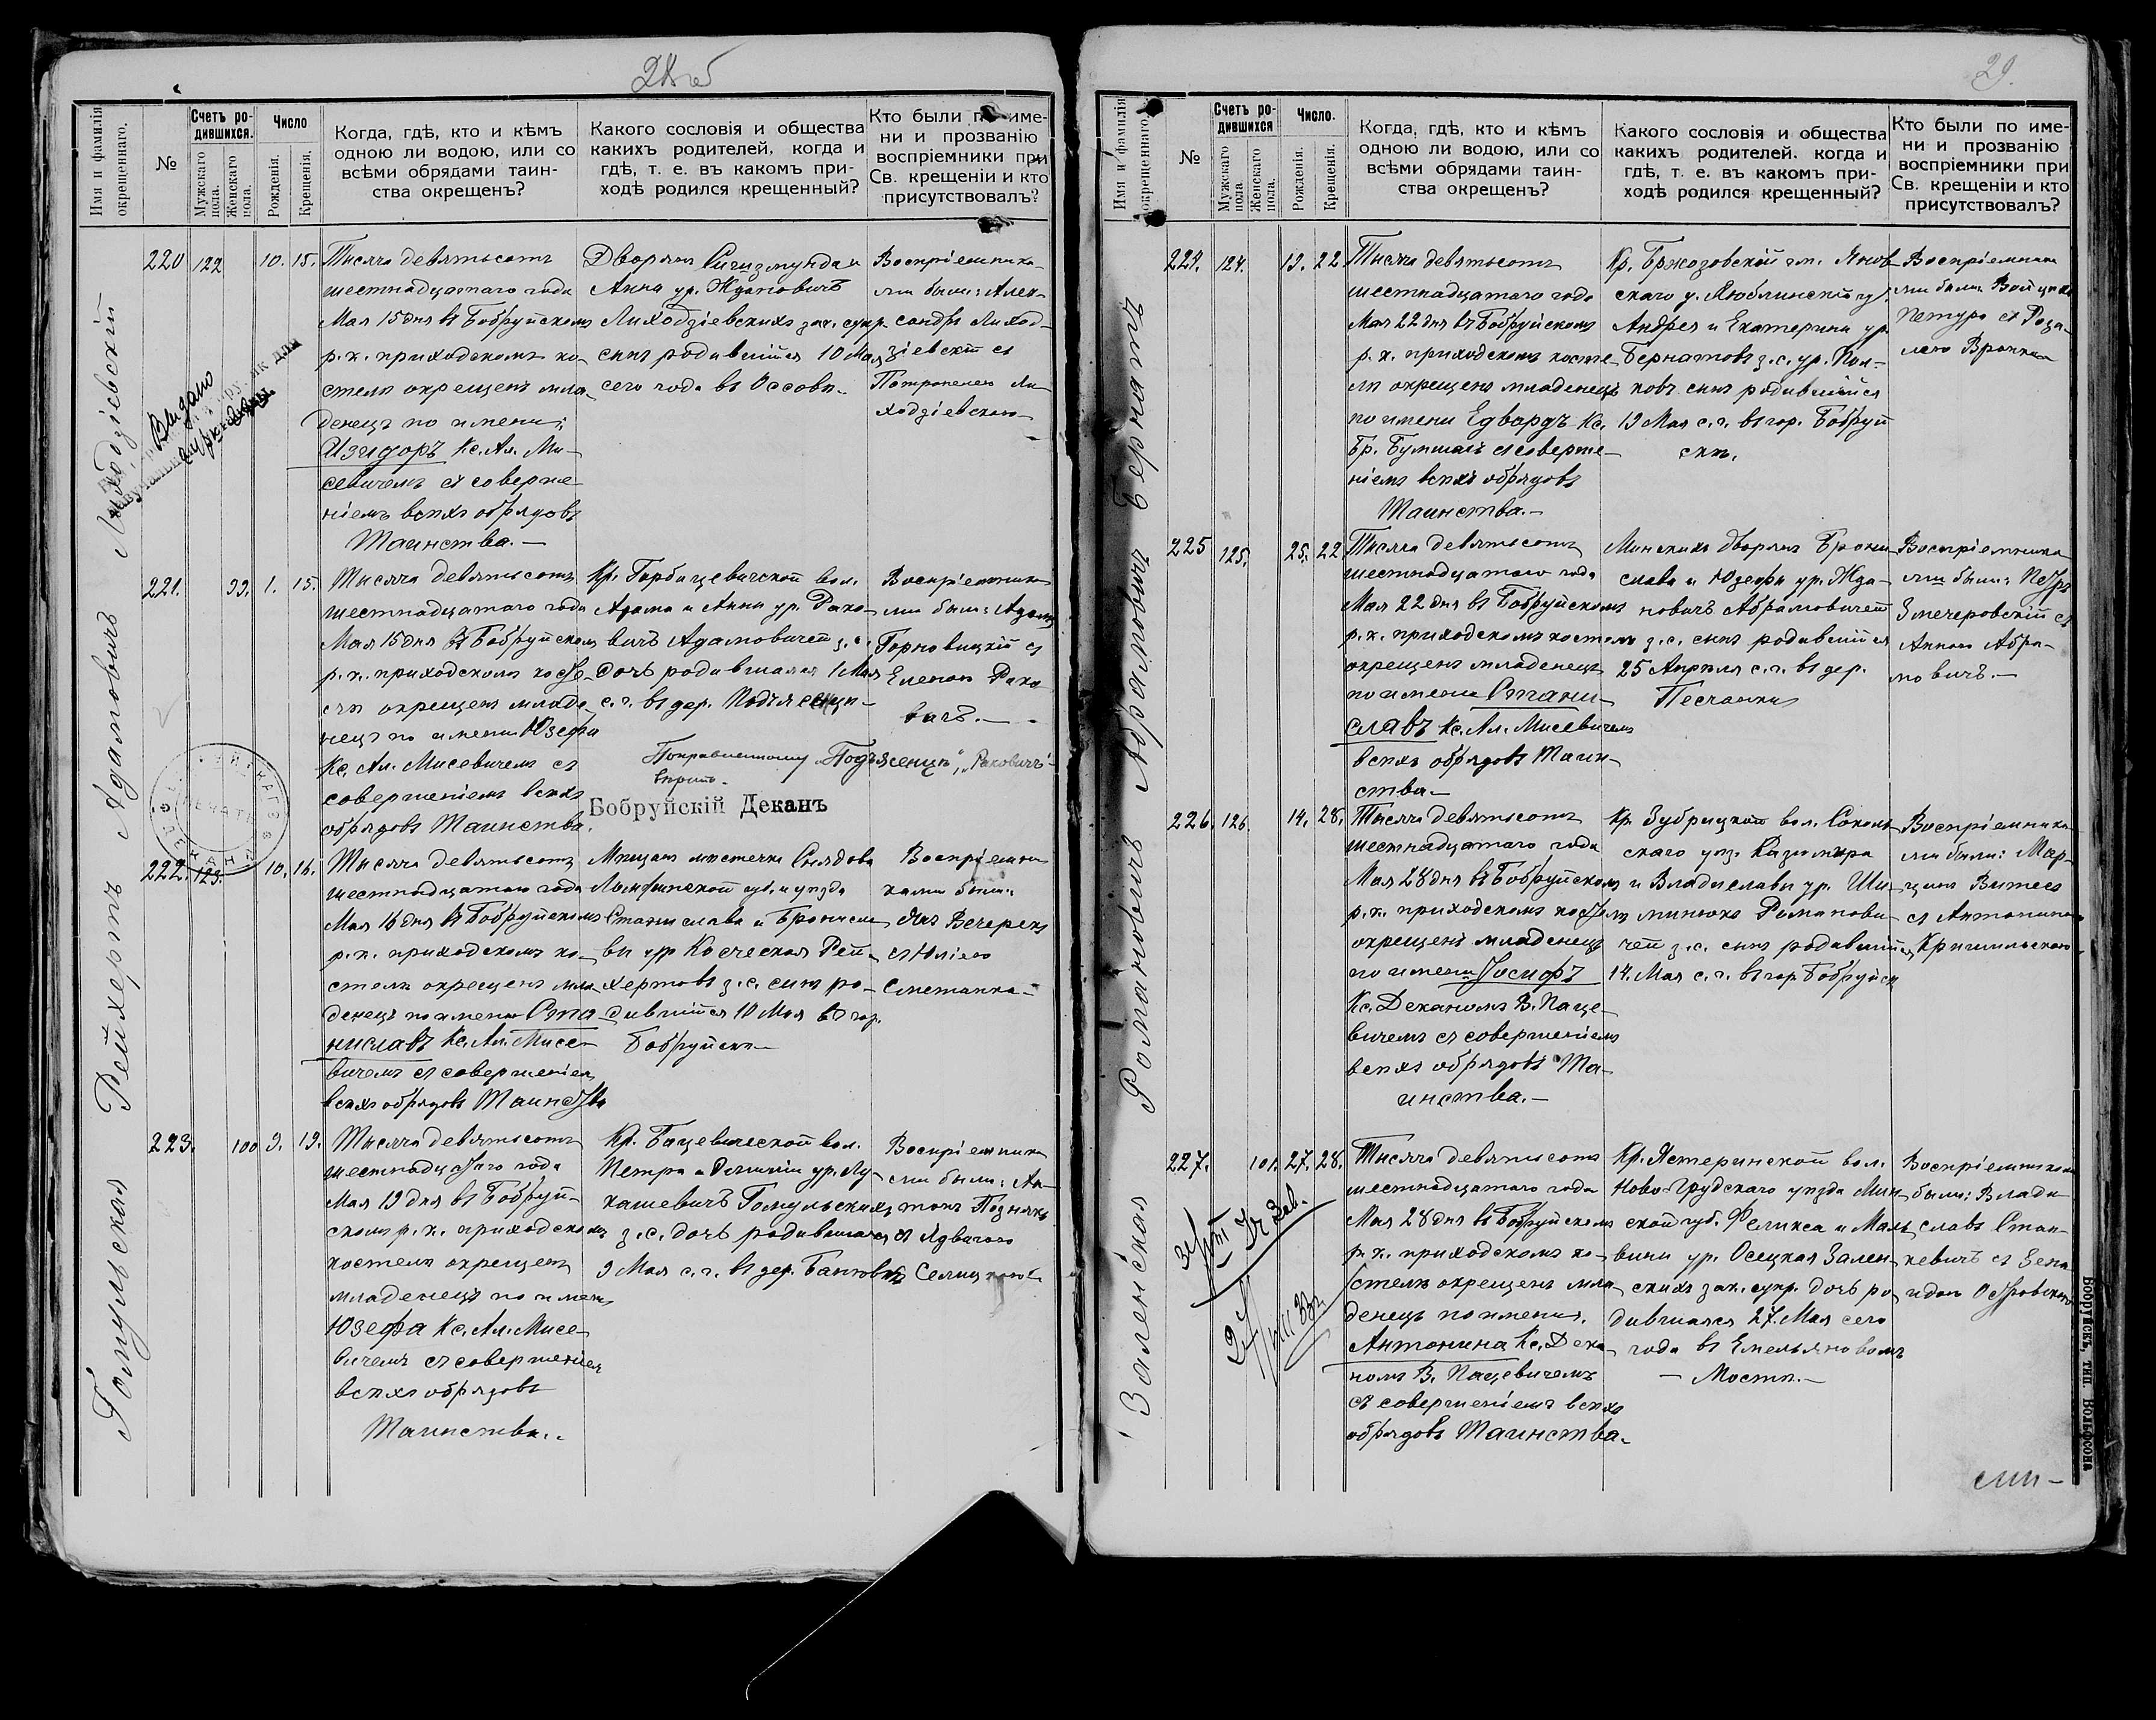 28об
Имя и фамилія окрещеннаго.
№
Счетъ родившихся.
Мужскаго пола.
Женскаго пола.
Число
Рожденія.
Крещенія.
Когда, гдѣ, кто и кѣмъ
одною ли водою, или со
всѣми обрядами таин-
ства окрещенъ?
Какого сословія и общества
какихъ родителей, когда и
гдѣ, т. е. въ какомъ при-
ходѣ родился крещенный?
Кто были по име-
ни и прозванію
воспріемники при
Св. крещеніи и кто
присутствовалъ?
Лиходзіевскій
Выдано
220 122 10. 15.
Тысяча девятьсотъ
шестнадцатаго года
Мая 15 дня въ Бобруйскомъ
р. к. приходскомъ ко-
стелѣ окрещенъ мла-
денецъ по имени:
Изидоръ Кс. Ал. Ми-
севичемъ съ соверше
ніемъ всѣхъ обрядовъ
Таинства. —
Дворянъ Сигизмунда и
Анны ур. Ждановичъ
Лиходзіевскихъ зак. супр.
сынъ родившійся 10 Мая
сего года въ Оссовѣ.
Воспріемника-
ми были: Алек-
сандръ Лиход-
зіевскій съ
Петронелею Ли
ходзіевскою
Адамовичъ
221. 99. 1. 15.
Тысяча девятьсотъ
шестнадцатаго года
Мая 15 дня въ Бобруйскомъ
р. к. приходскомъ косте-
лѣ окрещенъ младе-
нецъ по имени Юзефа
Кс. Ал. Мисевичемъ съ
совершеніемъ всѣхъ
обрядовъ Таинства.
Кр. Горбацевичской вол.
Адама и Анны ур. Рако-
вичъ Адамовичей з. с.
дочь родившаяся 1 Мая
с. г. въ дер. Подъясенцы
Поправленному „Подъясенцы", „Раковичъ"
вѣрить.
Бобруйскій Деканъ
Воспріемника
ми были: Адамъ
Горновицкій съ
Еленою Рако
вичъ. —
Рейхертъ
222. 123. 10. 16.
Тысяча девятьсотъ
шестнадцатаго года
Мая 16 дня въ Бобруйскомъ
р. к. приходскомъ ко-
стелѣ окрещенъ мла-
денецъ по имени Ста
ниславъ Кс. Ал. Мисе-
вичемъ съ совершеніемъ
всѣхъ обрядовъ Таинства
Мѣщанъ мѣстечка Снядова
Ломжинской губ. и уѣзда
Станислава и Бронисла
вы ур Косческая Рей-
хертовъ з. с. сынъ ро-
дившійся 10 Мая въ гор.
Бобруйскѣ —
Воспріемни
ками были:
Янъ Вечерекъ
съ Юліею
Сметанка-
Гомульская
223. 100 9. 19.
Тысяча девятьсотъ
шестнадцатаго года
Мая 19 дня въ Бобруй-
скомъ р. к. приходскомъ
костелѣ окрещенъ
младенецъ по имени
Юзефа Кс. Ал. Мисе-
вичемъ съ совершеніемъ
всѣхъ обрядовъ
Таинства.
Кр. Бацевичской вол.
Петра и ур. Лу-
кашевичъ Гомульскихъ
з. с. дочь родившаяся
9 Мая с. г. въ дер.
Воспріемника
ми были: Ан-
тонъ Познякъ
съ Ядвигою
29.
Имя и фамилія окрещеннаго.
№
Счетъ родившихся
Мужскаго пола.
Женскаго пола.
Число.
Рожденія.
Крещенія.
Когда, гдѣ, кто и кѣмъ
одною ли водою, или со
всѣми обрядами таин-
ства окрещенъ?
Какого сословія и общества
какихъ родителей. когда и
гдѣ, т. е. въ какомъ при-
ходѣ родился крещенный?
Кто были по име-
ни и прозванію
воспріемники при
Св. крещеніи и кто
присутствовалъ?
Бернатъ
224. 124. 19. 22
Тысяча девятьсотъ
шестнадцатаго года
Мая 22 дня въ Бобруйскомъ
р. к. приходскомъ косте-
лѣ окрещенъ младенецъ
по имени Едвардъ Кс.
Бр. съ соверше-
ніемъ всѣхъ обрядовъ
Таинства. —
Кр. Бржозовской гм. Янов-
скаго у. Люблинской губ.
Андрея и Екатерины ур.
Бернатовъ з. с. ур. Пол-
ковъ сынъ родившійся
19 Мая с. г. въ гор. Бобруй
скѣ.
Воспріемника
ми были: Войцехъ
Петура съ Роза-
ліею
Абрамовичъ
225 125. 25. 22
Тысяча девятьсотъ
шестнадцатаго года
Мая 22 дня въ Бобруйскомъ
р. к. приходскомъ костелѣ
окрещенъ младенецъ
по имени Стани-
славъ Кс. Ал. Мисевичемъ
всѣхъ обрядовъ Таин-
ства —
Минскихъ дворянъ Брони
слава и Юзефы ур. Жда-
новичъ Абрамовичей
з. с. сынъ родившійся
25 Апрѣля с. г. въ дер.
Песчанки
Воспріемника
ми были: Петръ
Змечеровскій съ
Анною Абра-
мовичъ. —
Романовичъ
226. 126. 14. 28.
Тысяча девятьсотъ
шестнадцатаго года
Мая 28 дня въ Бобруйскомъ
р. к. приходскомъ костелѣ
окрещенъ младенецъ
по имени Іосифъ
Кс. Деканомъ В. Паце-
вичемъ съ совершеніемъ
всѣхъ обрядовъ Та-
инства. —
Кр. Зубрицкой вол. Соколь-
скаго уѣз. Казимира
и Владиславы ур. Ши-
манюко Романови-
чей з. с. сынъ родившійся
14. Мая с. г. въ гор. Бобруйск
Воспріемника-
ми были: Мар-
цинъ Витесъ
съ Антониною
Заленская
227. 101. 27. 28.
Тысяча девятьсотъ
шестнадцатаго года
Мая 28 дня въ Бобруйскомъ
р. к. приходскомъ ко-
стелѣ окрещенъ мла-
денецъ по имени
Антонина Кс. Дека-
номъ В. Пацевичемъ
съ совершеніемъ всѣхъ
обрядовъ Таинства.
Кр. Ястеринской вол.
Ново-Грудскаго уѣзда Мин-
ской губ. Феликса и Маль-
вины ур. Осецкая Зален-
скихъ зак. супр. дочь ро
дившаяся 27. Мая сего
года въ Емельяновомъ
— Мостѣ. —
Воспріемниками
были: Влади
славъ Стан-
кевичъ съ Зена
идою Островскою
Бобруйскъ, тип. Вольфсона